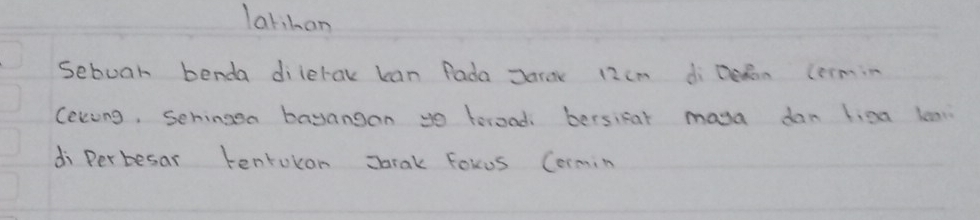 latihan
Sebuah benda diletak kan Pada Jarak 12 cm di Depan Cermin
Cekung. Sehingga bayangan yg terjadi bersifat maya dan tiga kali
di Perbesar tentukan Jarak Fokus Cermin